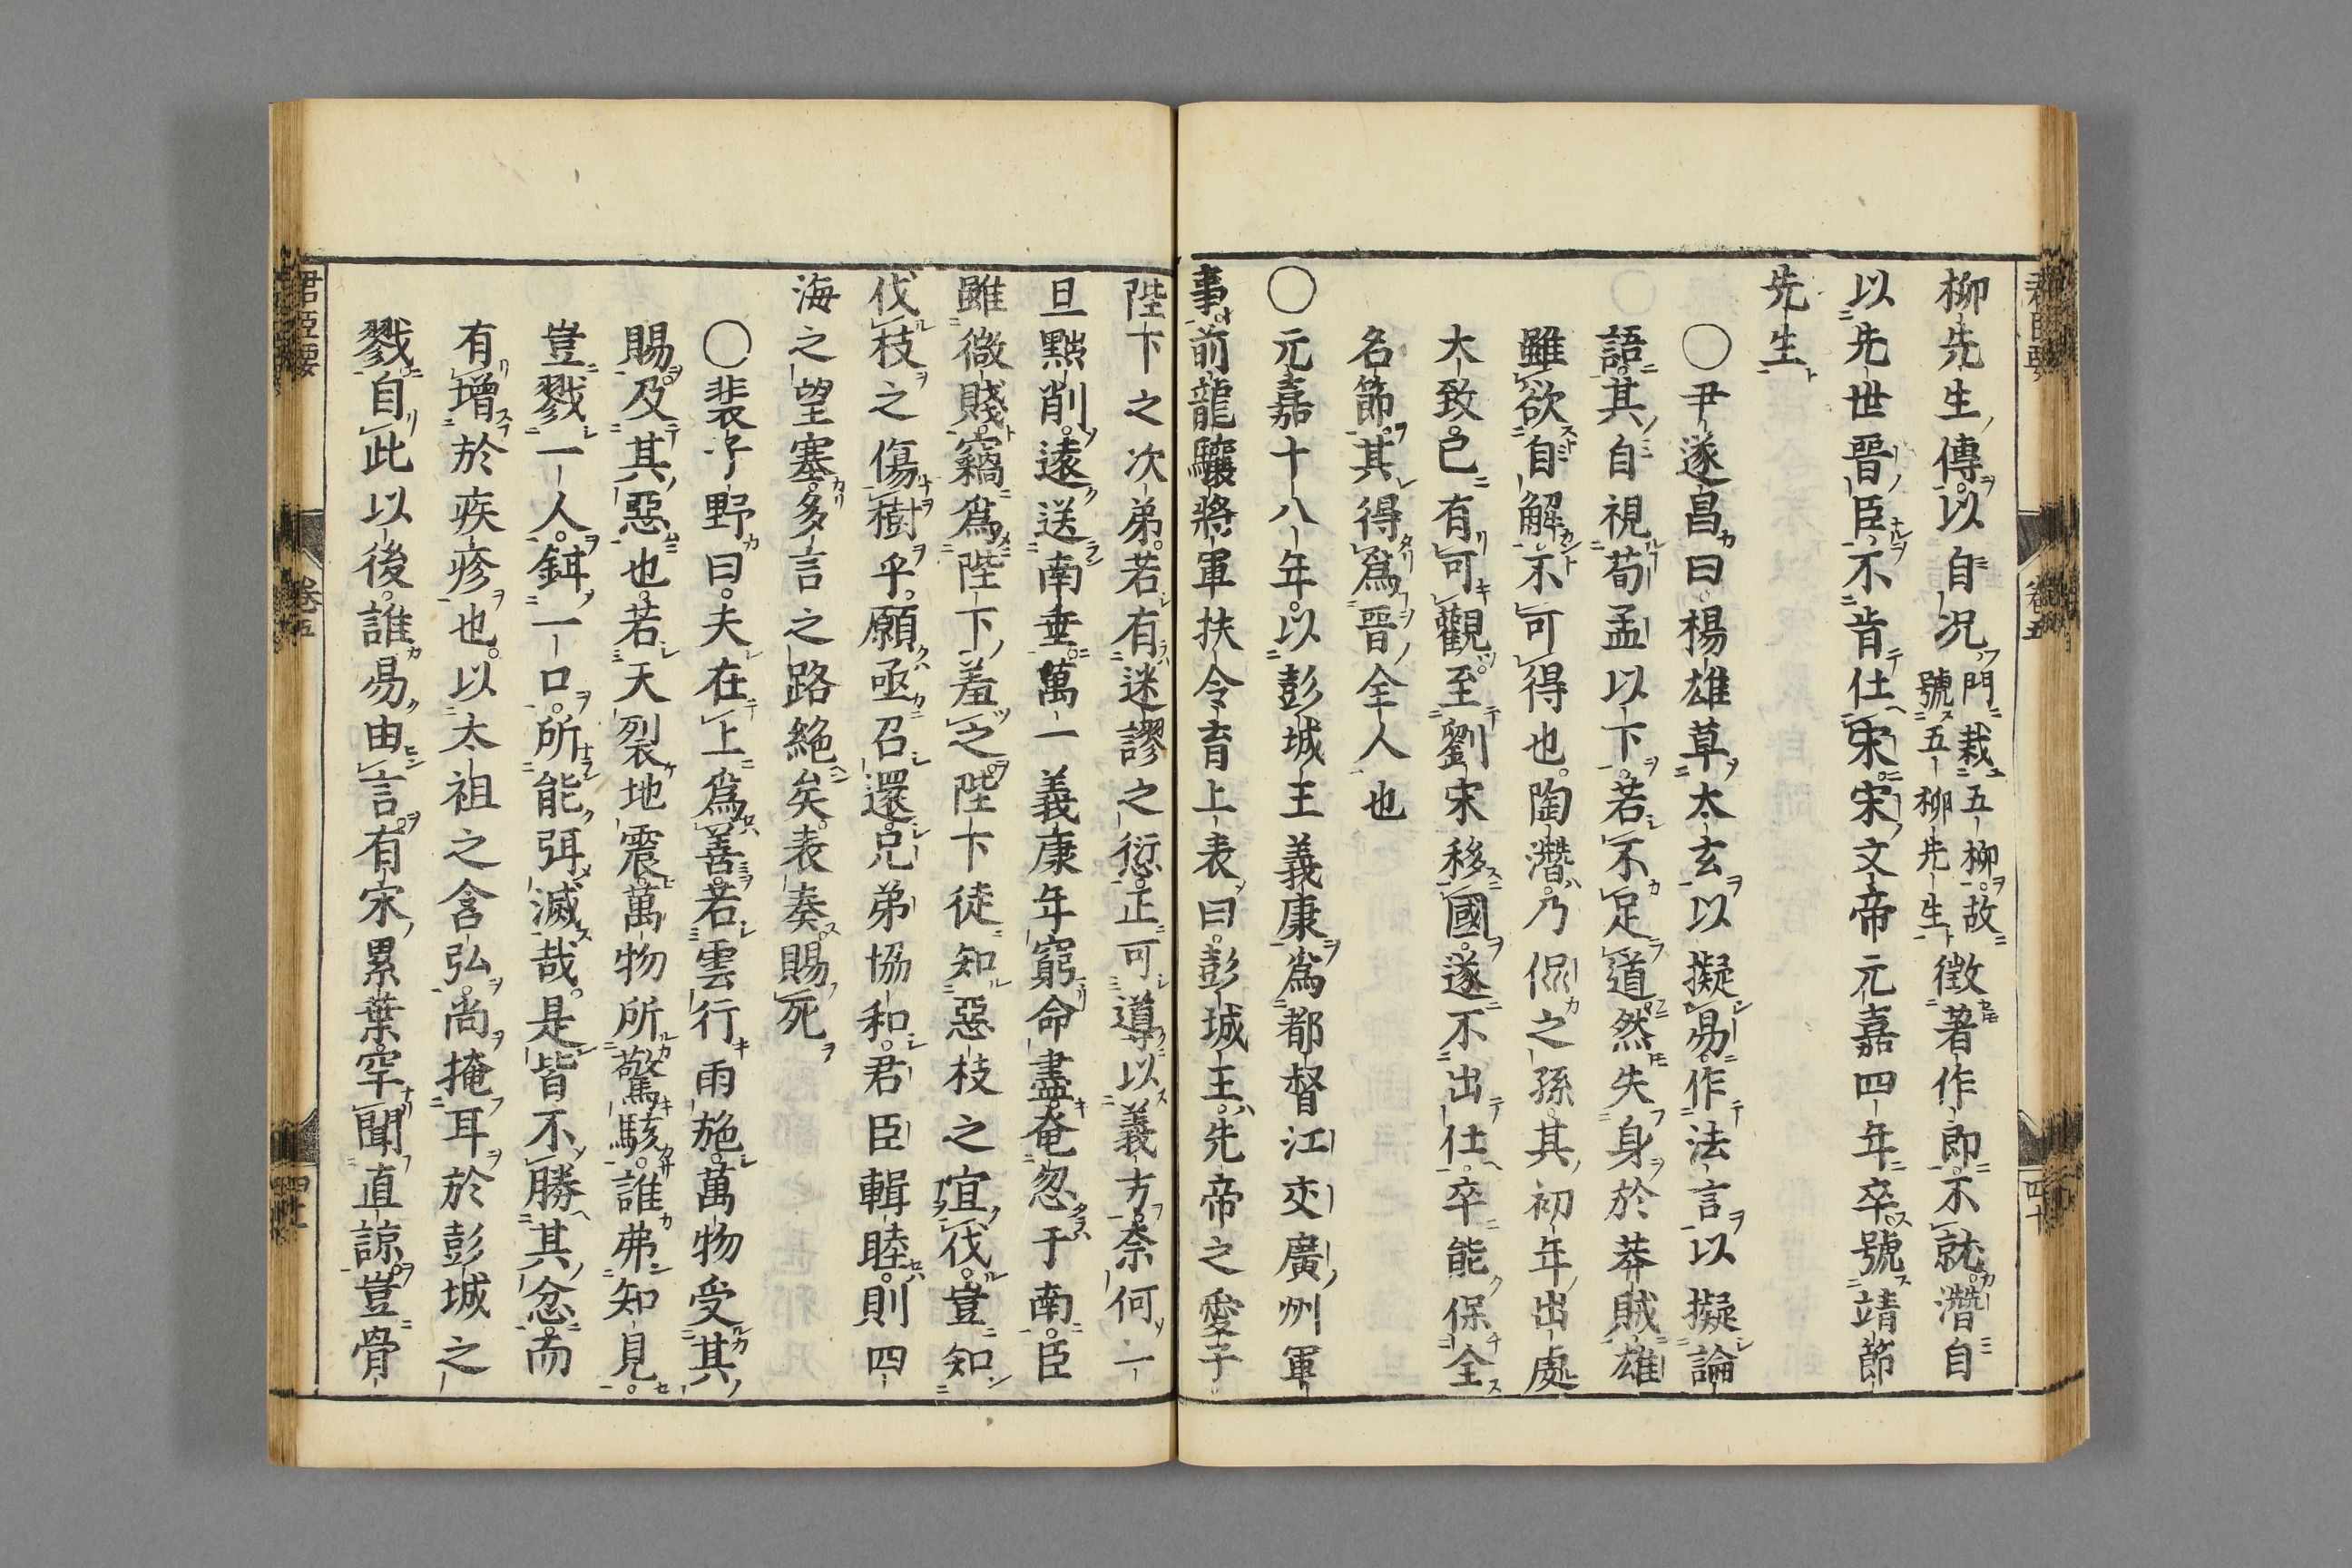 柳先生傳以自况門栽五柳故號五柳先生徴著作郎不就潛自
以先世晉臣不肯仕宋宋文帝元嘉四年卒號靖節
先生
〇尹遂昌曰楊雄草太玄以擬易作法言以擬論
語其自視荀孟以下若不足道然失身於莽賊雄
雖欲自解不可得也陶潛乃侃之孫其初年出處
大致已有可觀至劉宋移國遂不出仕卒能保全
名節其得爲晉全人也
〇元嘉十八年以彭城王義康爲都督江交廣州軍
事前龍驤將軍扶令育上表曰彭城王先帝之愛子
陛下之次弟若有迷謬之愆正可導以義方奈何一
旦黜削遠送南垂萬一義康年窮命盡奄忽于南臣
雖微賤竊爲陛下羞之陛下徒知惡枝之宜伐豈知
伐枝之傷樹乎願亟召還兄弟協和君臣輯睦則四
海之望塞多言之路絶矣表奏賜死
〇裴子野曰夫在上爲善若雲行雨施萬物受其
賜及其惡也若天裂地震萬物所驚駭誰弗知見
豈戮一人鉗一口所能弭滅哉是皆不勝其忿而
有增於疾疹也以太祖之含弘尚掩耳於彭城之
戮自此以後誰易由言有宋累葉罕聞直諒豈骨
君臣要
卷五